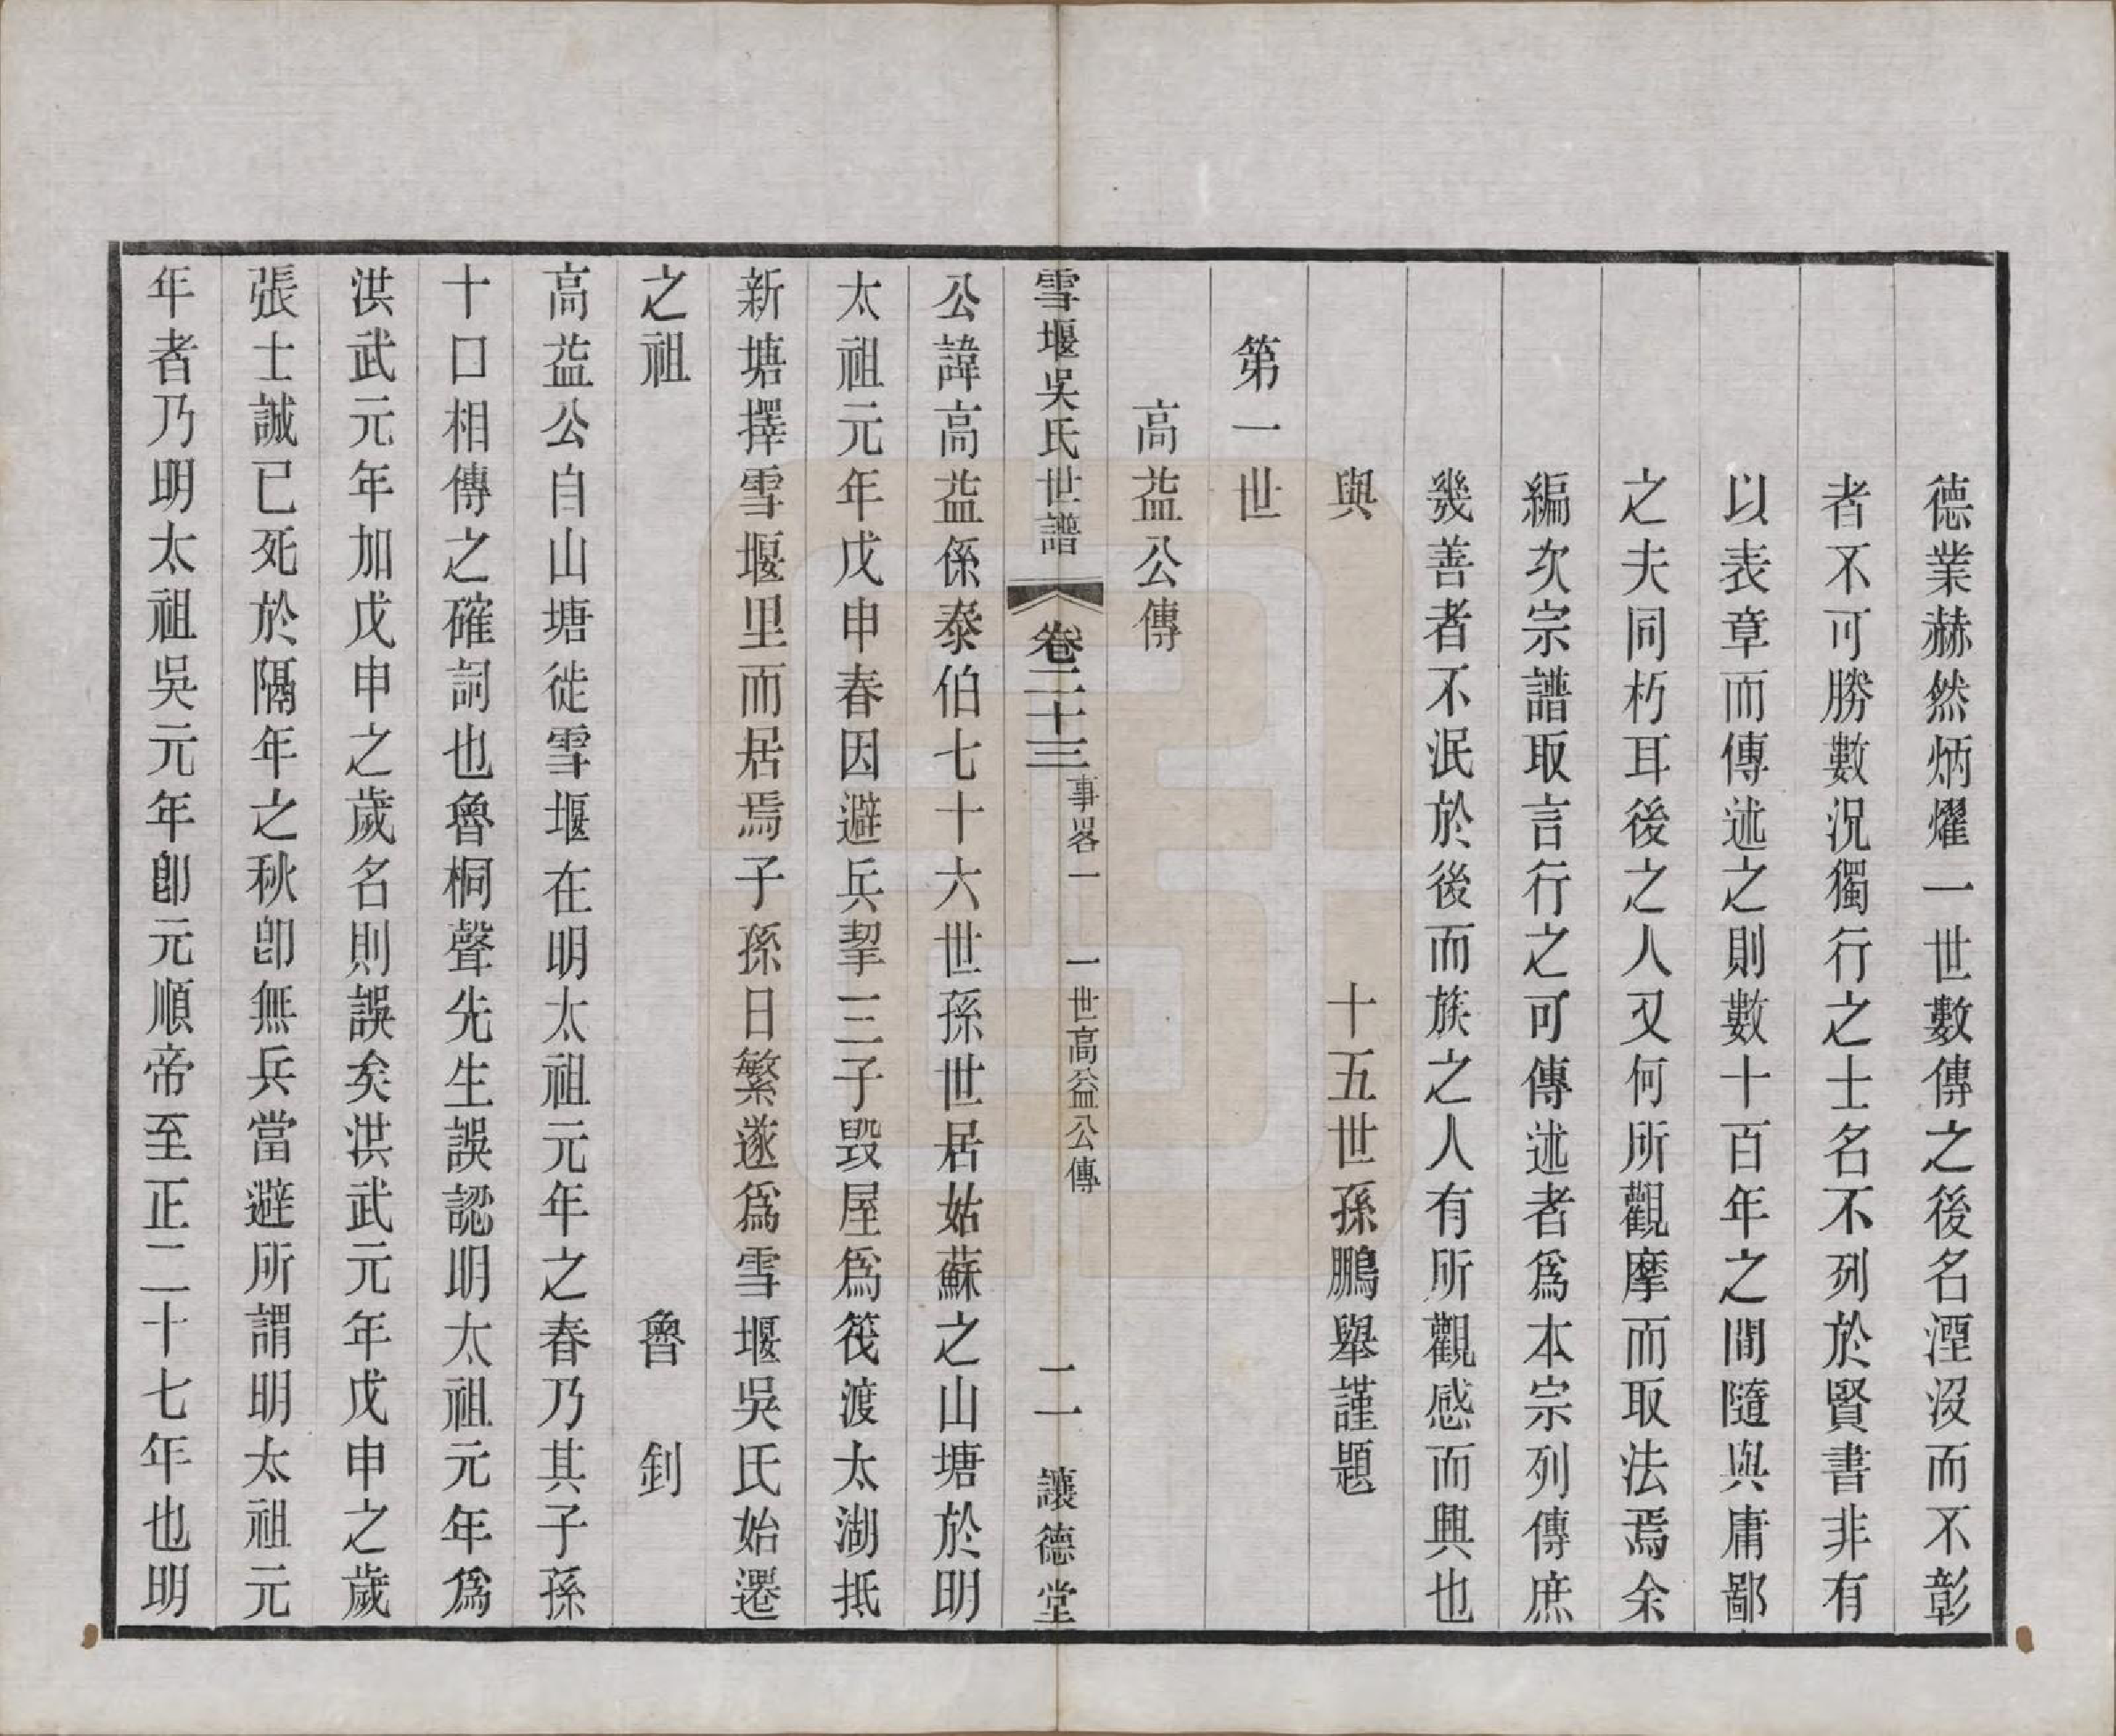 德業赫然炳燿一世數傳之後名湮沒而不彰
者不可勝數況獨行之士名不列於賢書非有
以表章而傳述之則數十百年之間隨與庸鄙
之夫同朽耳後之人又何所觀摩而取法焉余
編次宗譜取言行之可傳述者爲本宗列傳庶
幾善者不泯於後而族之人有所觀感而興也
與　十五世孫鵬舉謹題
第一世
高益公傳
雪堰吳氏世譜　卷二十三　事畧一　一世高益公傳　二　讓德堂
公諱高益係泰伯七十六世孫世居姑蘇之山塘於明
太祖元年戊申春因避兵挈三子毀屋爲筏渡太湖抵
新塘擇雪堰里而居焉子孫日繁遂爲雪堰吳氏始遷
之祖　魯　釗
高益公自山塘徙雪堰在明太祖元年之春乃其子孫
十口相傳之確詞也魯桐聲先生誤認明太祖元年爲
洪武元年加戊申之歲名則誤矣洪武元年戊申之歲
張士誠已死於隔年之秋卽無兵當避所謂明太祖元
年者乃明太祖吳元年卽元順帝至正二十七年也明